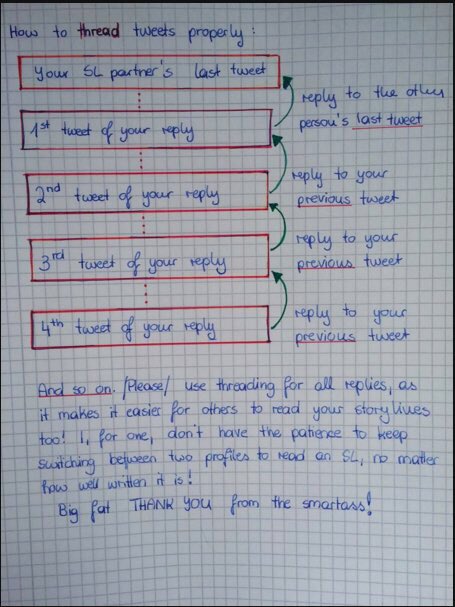 How to thread tweets properly:
your SL partner's last tweet
reply to the other
person's last tweet
1st tweet of your reply
reply to your
previous tweet
2nd tweet of your reply
reply to your
previous tweet
3rd tweet of your reply
reply to your
previous tweet
4th tweet of your reply
And so on. /Please/ use threading for all replies, as
it makes it easier for others to read your storylines
too! I, for one, don't have the patience to keep
switching between two profiles to read an SL, no matter
how well written it is!
Big fat THANK YOU from the smartass!